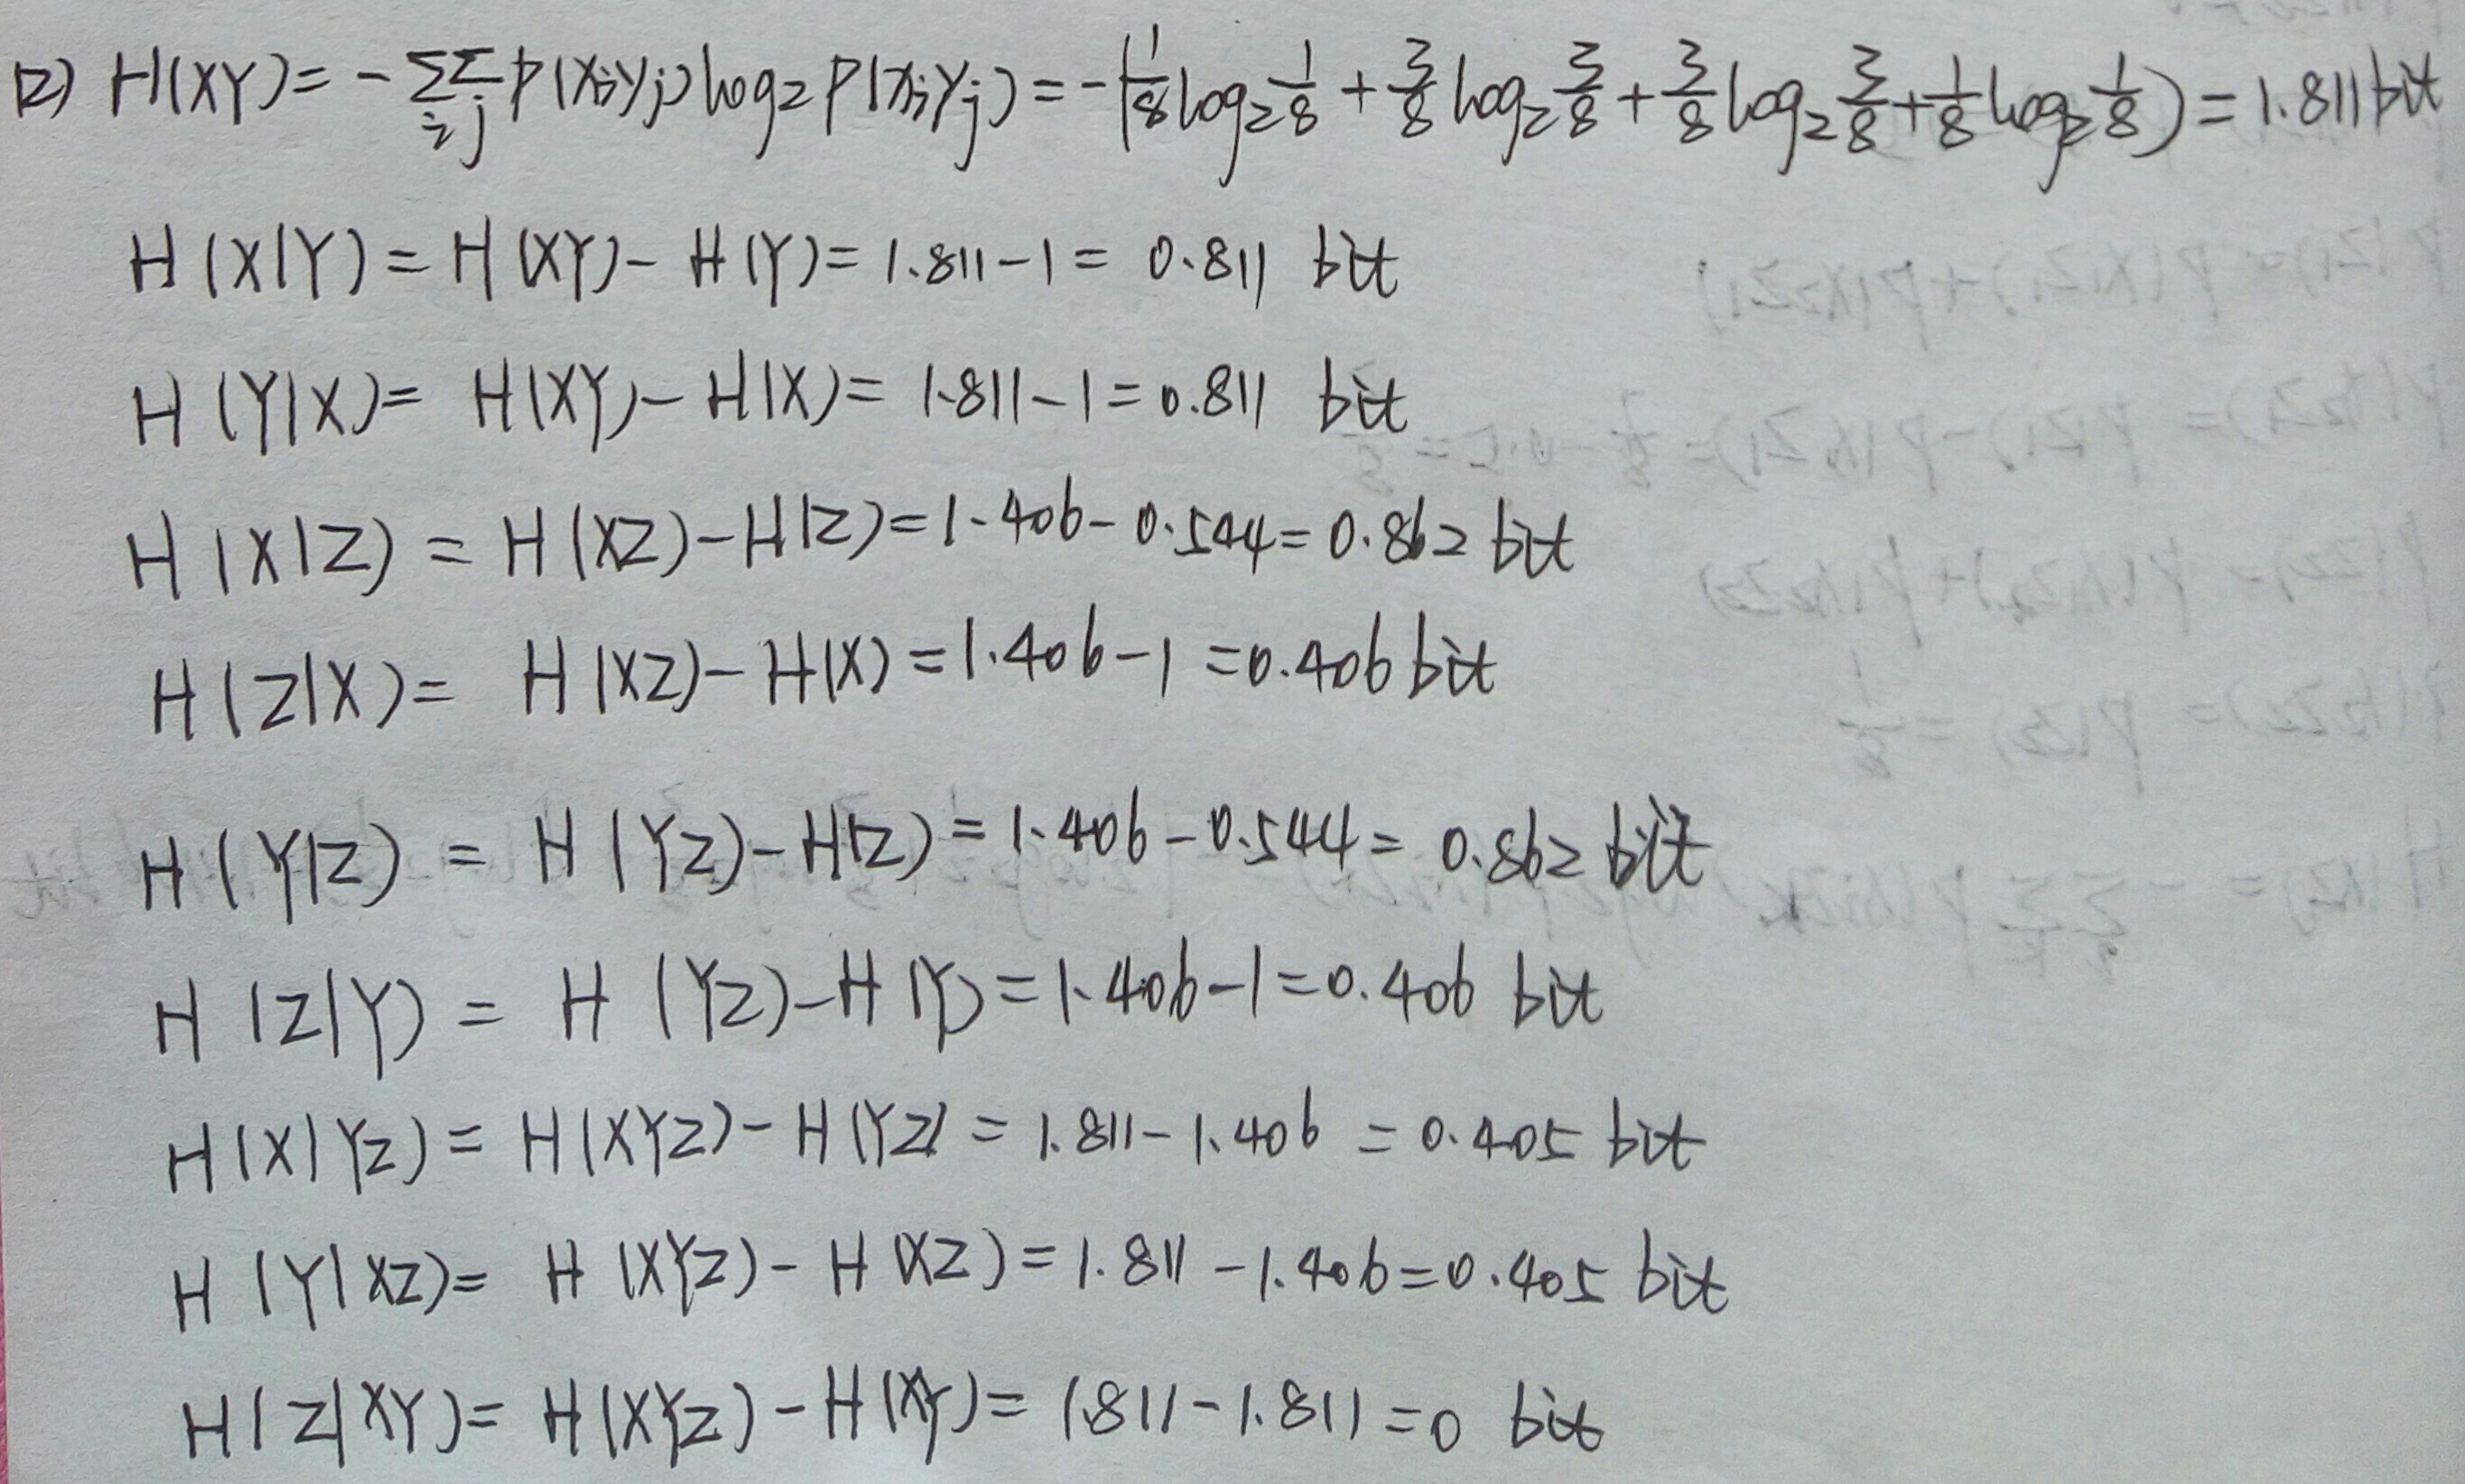 (2) H(XY) = -∑i∑j p(xiyj) log2 p(xiyj) = -(1/8 log2 1/8 + 3/8 log2 3/8 + 3/8 log2 3/8 + 1/8 log2 1/8) = 1.811 bit
H(X|Y) = H(XY) - H(Y) = 1.811 - 1 = 0.811 bit
H(Y|X) = H(XY) - H(X) = 1.811 - 1 = 0.811 bit
H(X|Z) = H(XZ) - H(Z) = 1.406 - 0.544 = 0.862 bit
H(Z|X) = H(XZ) - H(X) = 1.406 - 1 = 0.406 bit
H(Y|Z) = H(YZ) - H(Z) = 1.406 - 0.544 = 0.862 bit
H(Z|Y) = H(YZ) - H(Y) = 1.406 - 1 = 0.406 bit
H(X|YZ) = H(XYZ) - H(YZ) = 1.811 - 1.406 = 0.405 bit
H(Y|XZ) = H(XYZ) - H(XZ) = 1.811 - 1.406 = 0.405 bit
H(Z|XY) = H(XYZ) - H(XY) = 1.811 - 1.811 = 0 bit